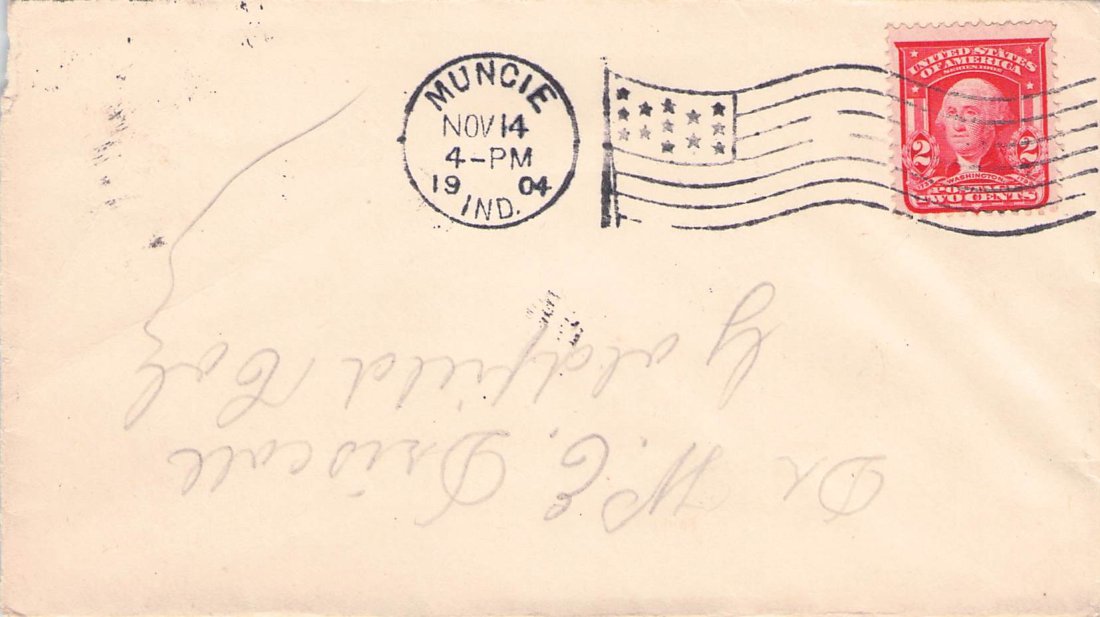 MUNCIE
NOV 14
4-PM
19 04
IND.
UNITED STATES
OF AMERICA
SERIES 1902
2 2
WASHINGTON
TWO CENTS
Dr W. E. Driscoll
Goldfield